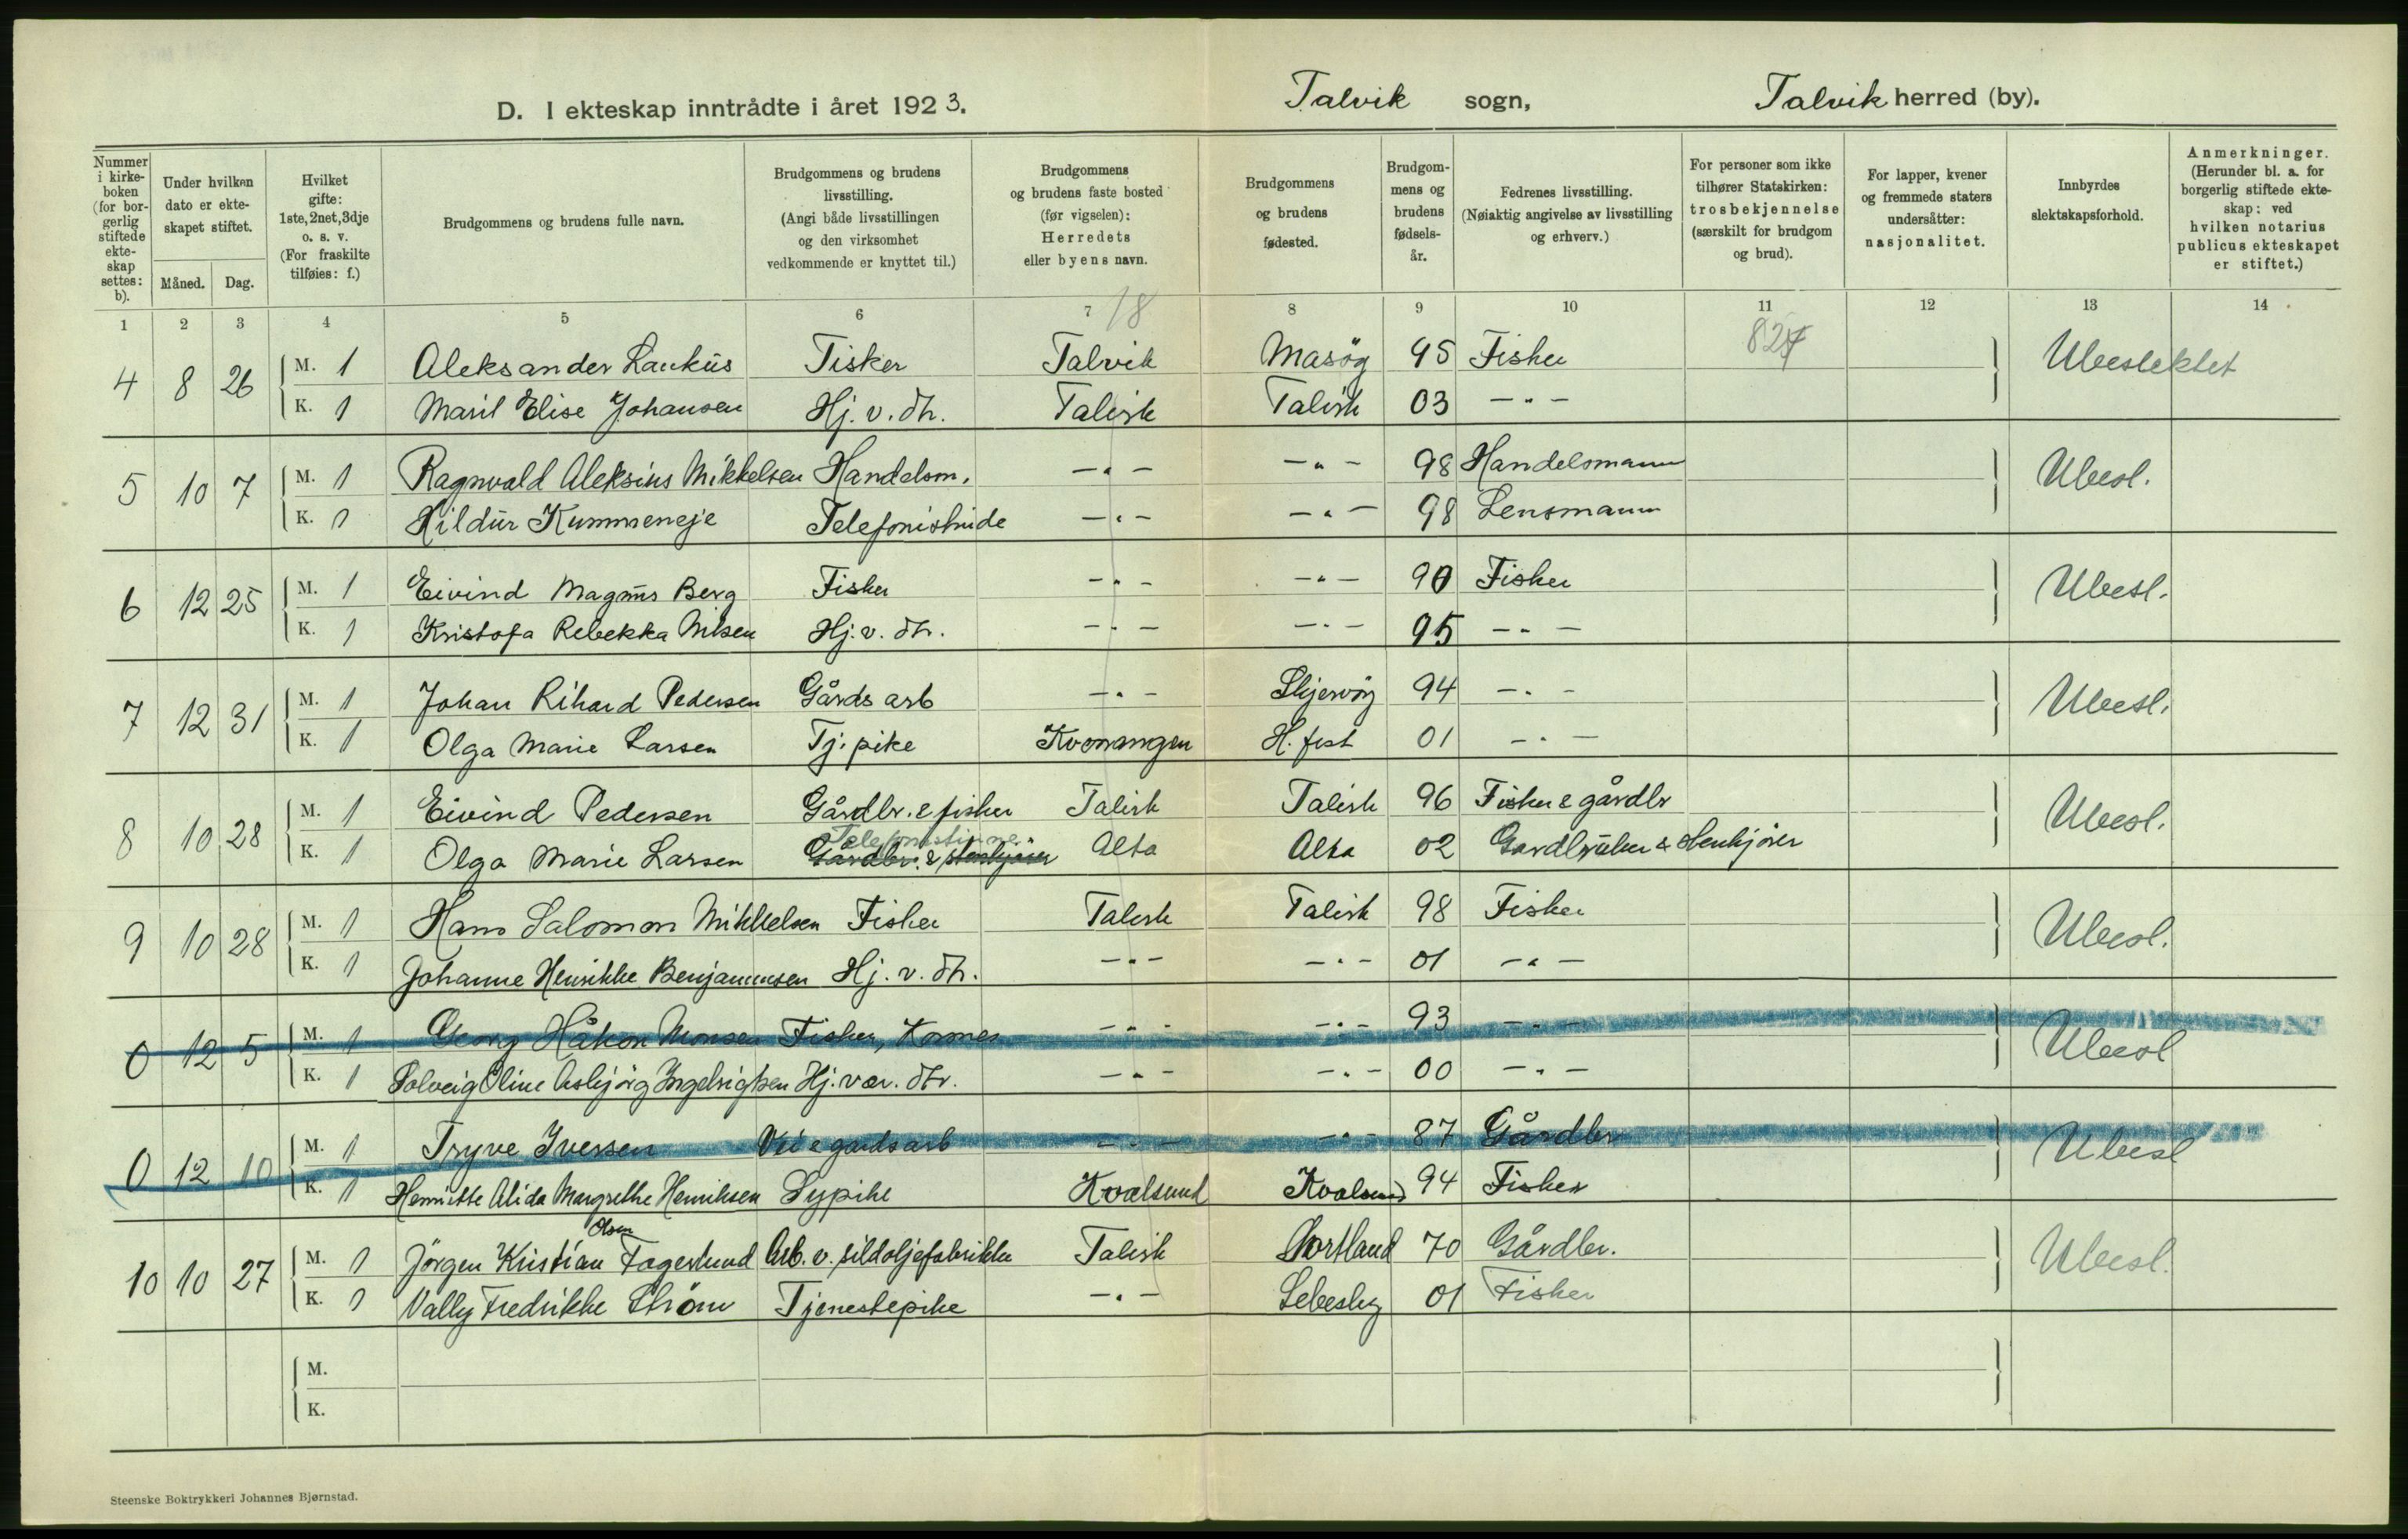 D. I ekteskap inntrådte i året 1923.
Talvik sogn,
Talvik herred (by).
Nummer i kirke- boken (for bor- gerlig stiftede ekte- skap settes: b).
Under hvilken dato er ekte- skapet stiftet.
Måned. Dag.
Hvilket gifte: 1ste, 2net, 3dje o. s. v. (For fraskilte tilføies: f.)
Brudgommens og brudens fulle navn.
Brudgommens og brudens livsstilling. (Angi både livsstillingen og den virksomhet vedkommende er knyttet til.)
Brudgommens og brudens faste bosted (før vigselen): Herredets eller byens navn.
Brudgommens og brudens fødested.
Brudgom- mens og brudens fødsels- år.
Fedrenes livsstilling. (Nøiaktig angivelse av livsstilling og erhverv.)
For personer som ikke tilhører Statskirken: trosbekjennelse (særskilt for brudgom og brud).
For lapper, kvener og fremmede staters undersåtter: nasjonalitet.
Innbyrdes slektskapsforhold.
Anmerkninger. (Herunder bl. a. for borgerlig stiftede ekte- skap: ved hvilken notarius publicus ekteskapet er stiftet.)
1 2 3 4 5 6 7 18 8 9 10 11 12 13 14
4 8 26 M. 1 Aleksander Laukus Fisker Talvik Masøy 95 Fisker Ubeslektet
K. 1 Maril Elise Johansen Hj. v. do. Talvik Talvik 03 — " —
5 10 7 M. 1 Ragnvald Aleksius Mikkelsen Handelsm. — " — — " — 98 Handelsmann Ubesl.
K. 1 Hildur Kummeneje Telefonistinde — " — — " — 98 Lensmann
6 12 25 M. 1 Eivind Magnus Berg Fisker — " — — " — 90 Fisker Ubesl.
K. 1 Kristofa Rebekka Nilsen Hj. v. do. — " — — " — 95 — " —
7 12 31 M. 1 Johan Rihard Pedersen Gårdsarb — " — Skjervøy 94 — " — Ubesl.
K. 1 Olga Marie Larsen Tj. pike Kvenangen H. fest 01 — " —
8 10 28 M. 1 Eivind Pedersen Gårdbr. & fisker Talvik Talvik 96 Fisker & gårdbr Ubesl.
Telefonistinne
K. 1 Olga Marie Larsen Gårdbr. & stenhjører Alta Alta 02 Gardbruker & Stenhjører
9 10 28 M. 1 Hans Salomon Mikkelsen Fisker Talvik Talvik 98 Fisker Ubesl.
K. 1 Johanne Henrikke Benjaminsen Hj. v. do. — " — — " — 01 — " —
0 12 5 M. 1 Georg Håkon Monsen Fisker, Kornes — " — — " — 93 — " — Ubesl
K. 1 Solveig Oline Asbjørg Ingebrigtsen Hj. vær. do. — " — — " — 00 — " —
0 12 10 M. 1 Tryve Iversen Vei & gardsarb — " — — " — 87 Gårdbr Ubesl
K. 1 Henriette Alida Margrethe Henriksen Sypike Kvalsund Kvalsund 94 Fisker
Olsen
10 10 27 M. 1 Jörgen Kristian Fagerlund Arb. v. sildoljefabrikke Talvik Sortland 70 Gårdbr. Ubesl.
K. 1 Vally Fredrikke Ström Tjenestepike — " — Lebesby 01 Fisker
M.
K.
Steenske Boktrykkeri Johannes Bjørnstad.